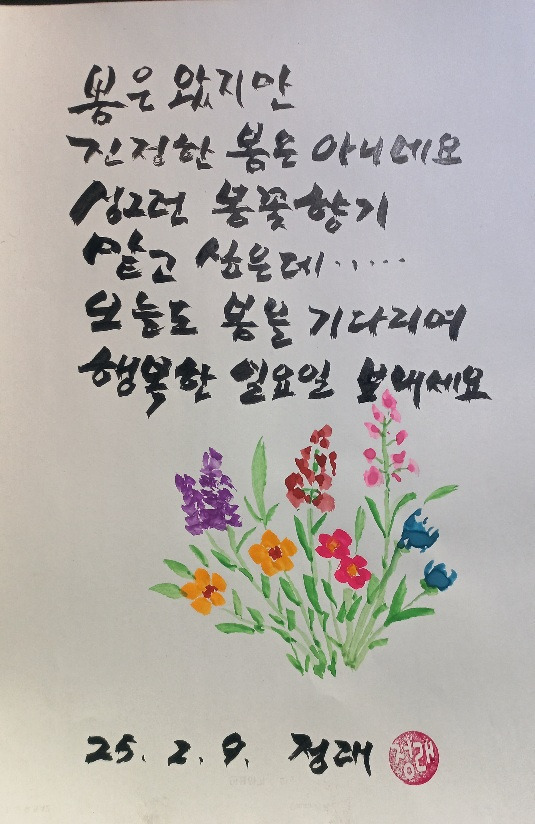 봄은 왔지만
진정한 봄은 아니네요
싱그런 봄꽃향기
맡고 싶은데.....
오늘도 봄을 기다리며
행복한 일요일 보내세요
25. 2. 9. 정래
정래